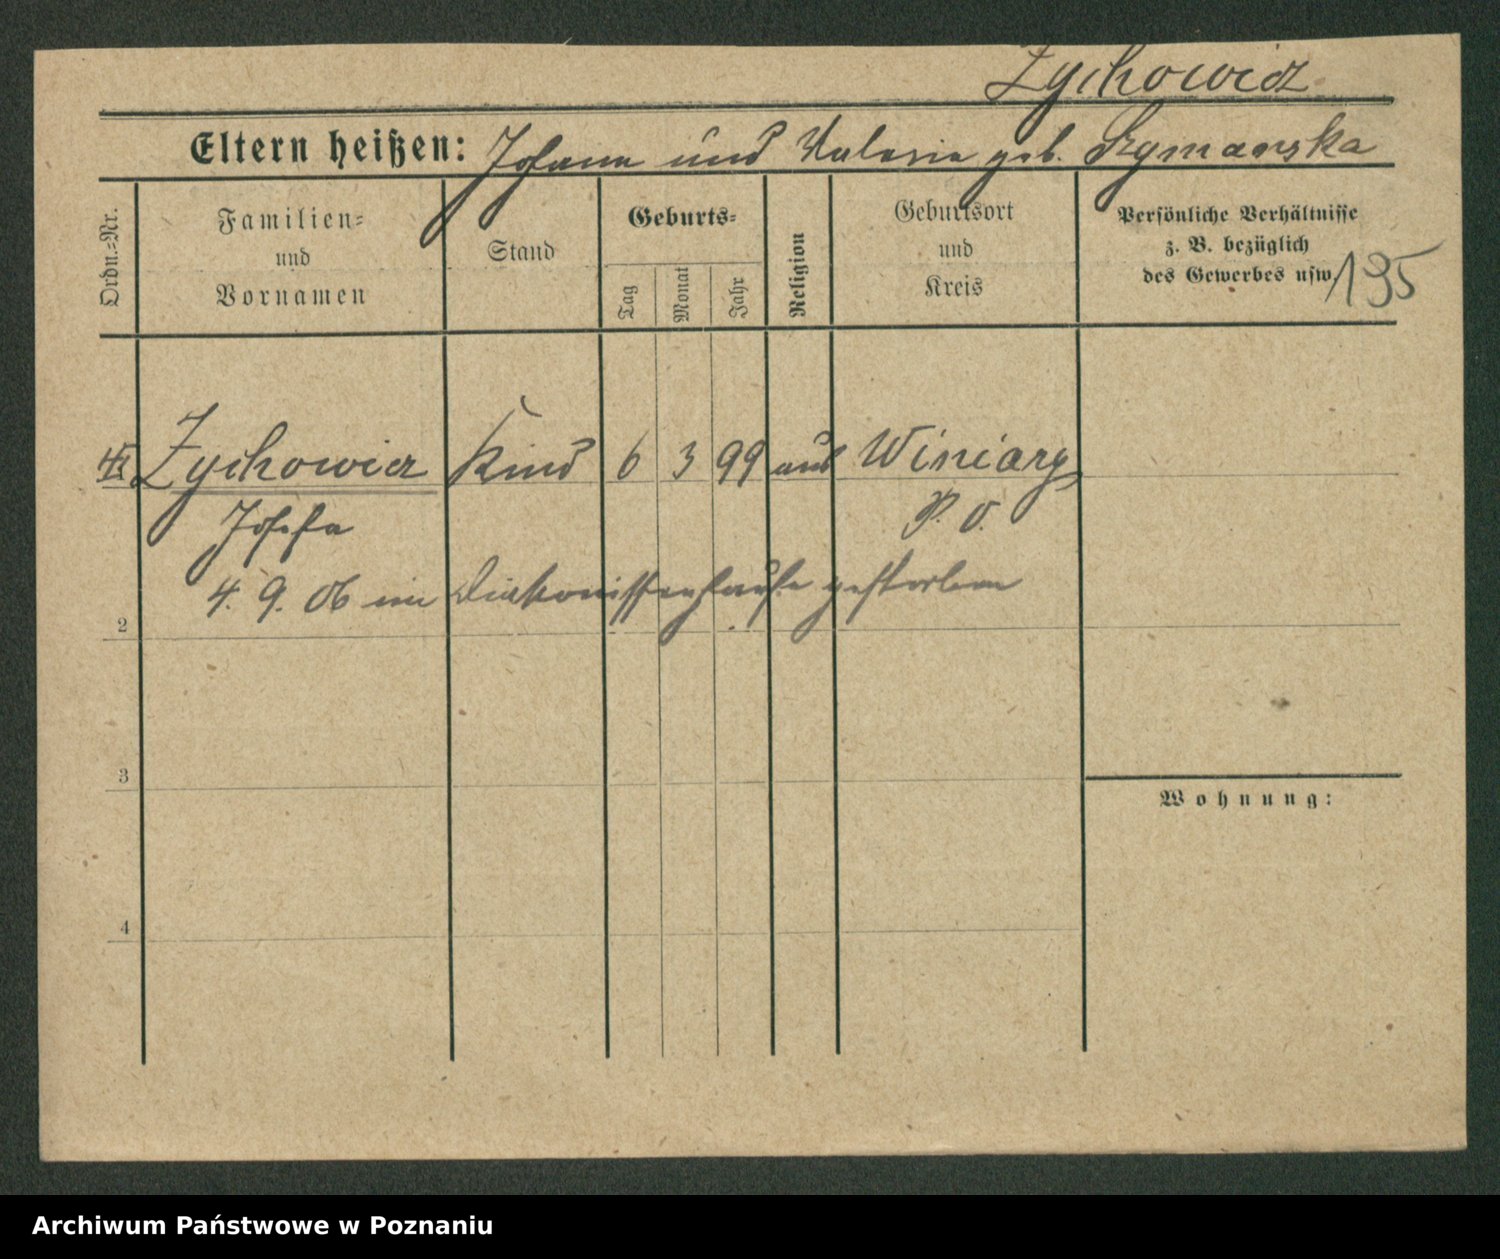 Zychowicz
Eltern heißen: Johann und Valeria geb. Szymanska
Ordn.=Nr.
Familien=
und
Vornamen
Stand
Geburts=
Tag
Monat
Jahr
Religion
Geburtsort
und
Kreis
Persönliche Verhältnisse
z. B. bezüglich
des Gewerbes usw
195
Zychowicz Kind 6 3 99 Winiary
Josefa P. O.
4. 9. 06 im Diakonissenhause gestorben
2
3
Wohnung:
4
Archiwum Państwowe w Poznaniu